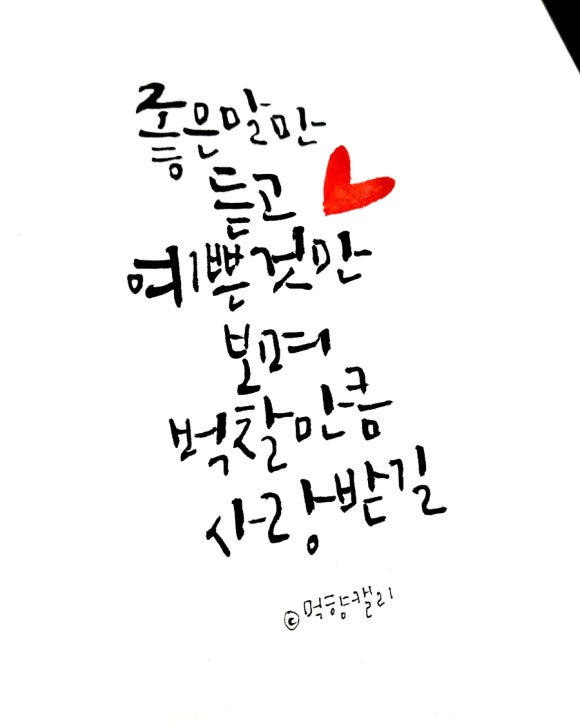 좋은말만
듣고
예쁜것만
보며
벅찰만큼
사랑받길
©먹향캘리